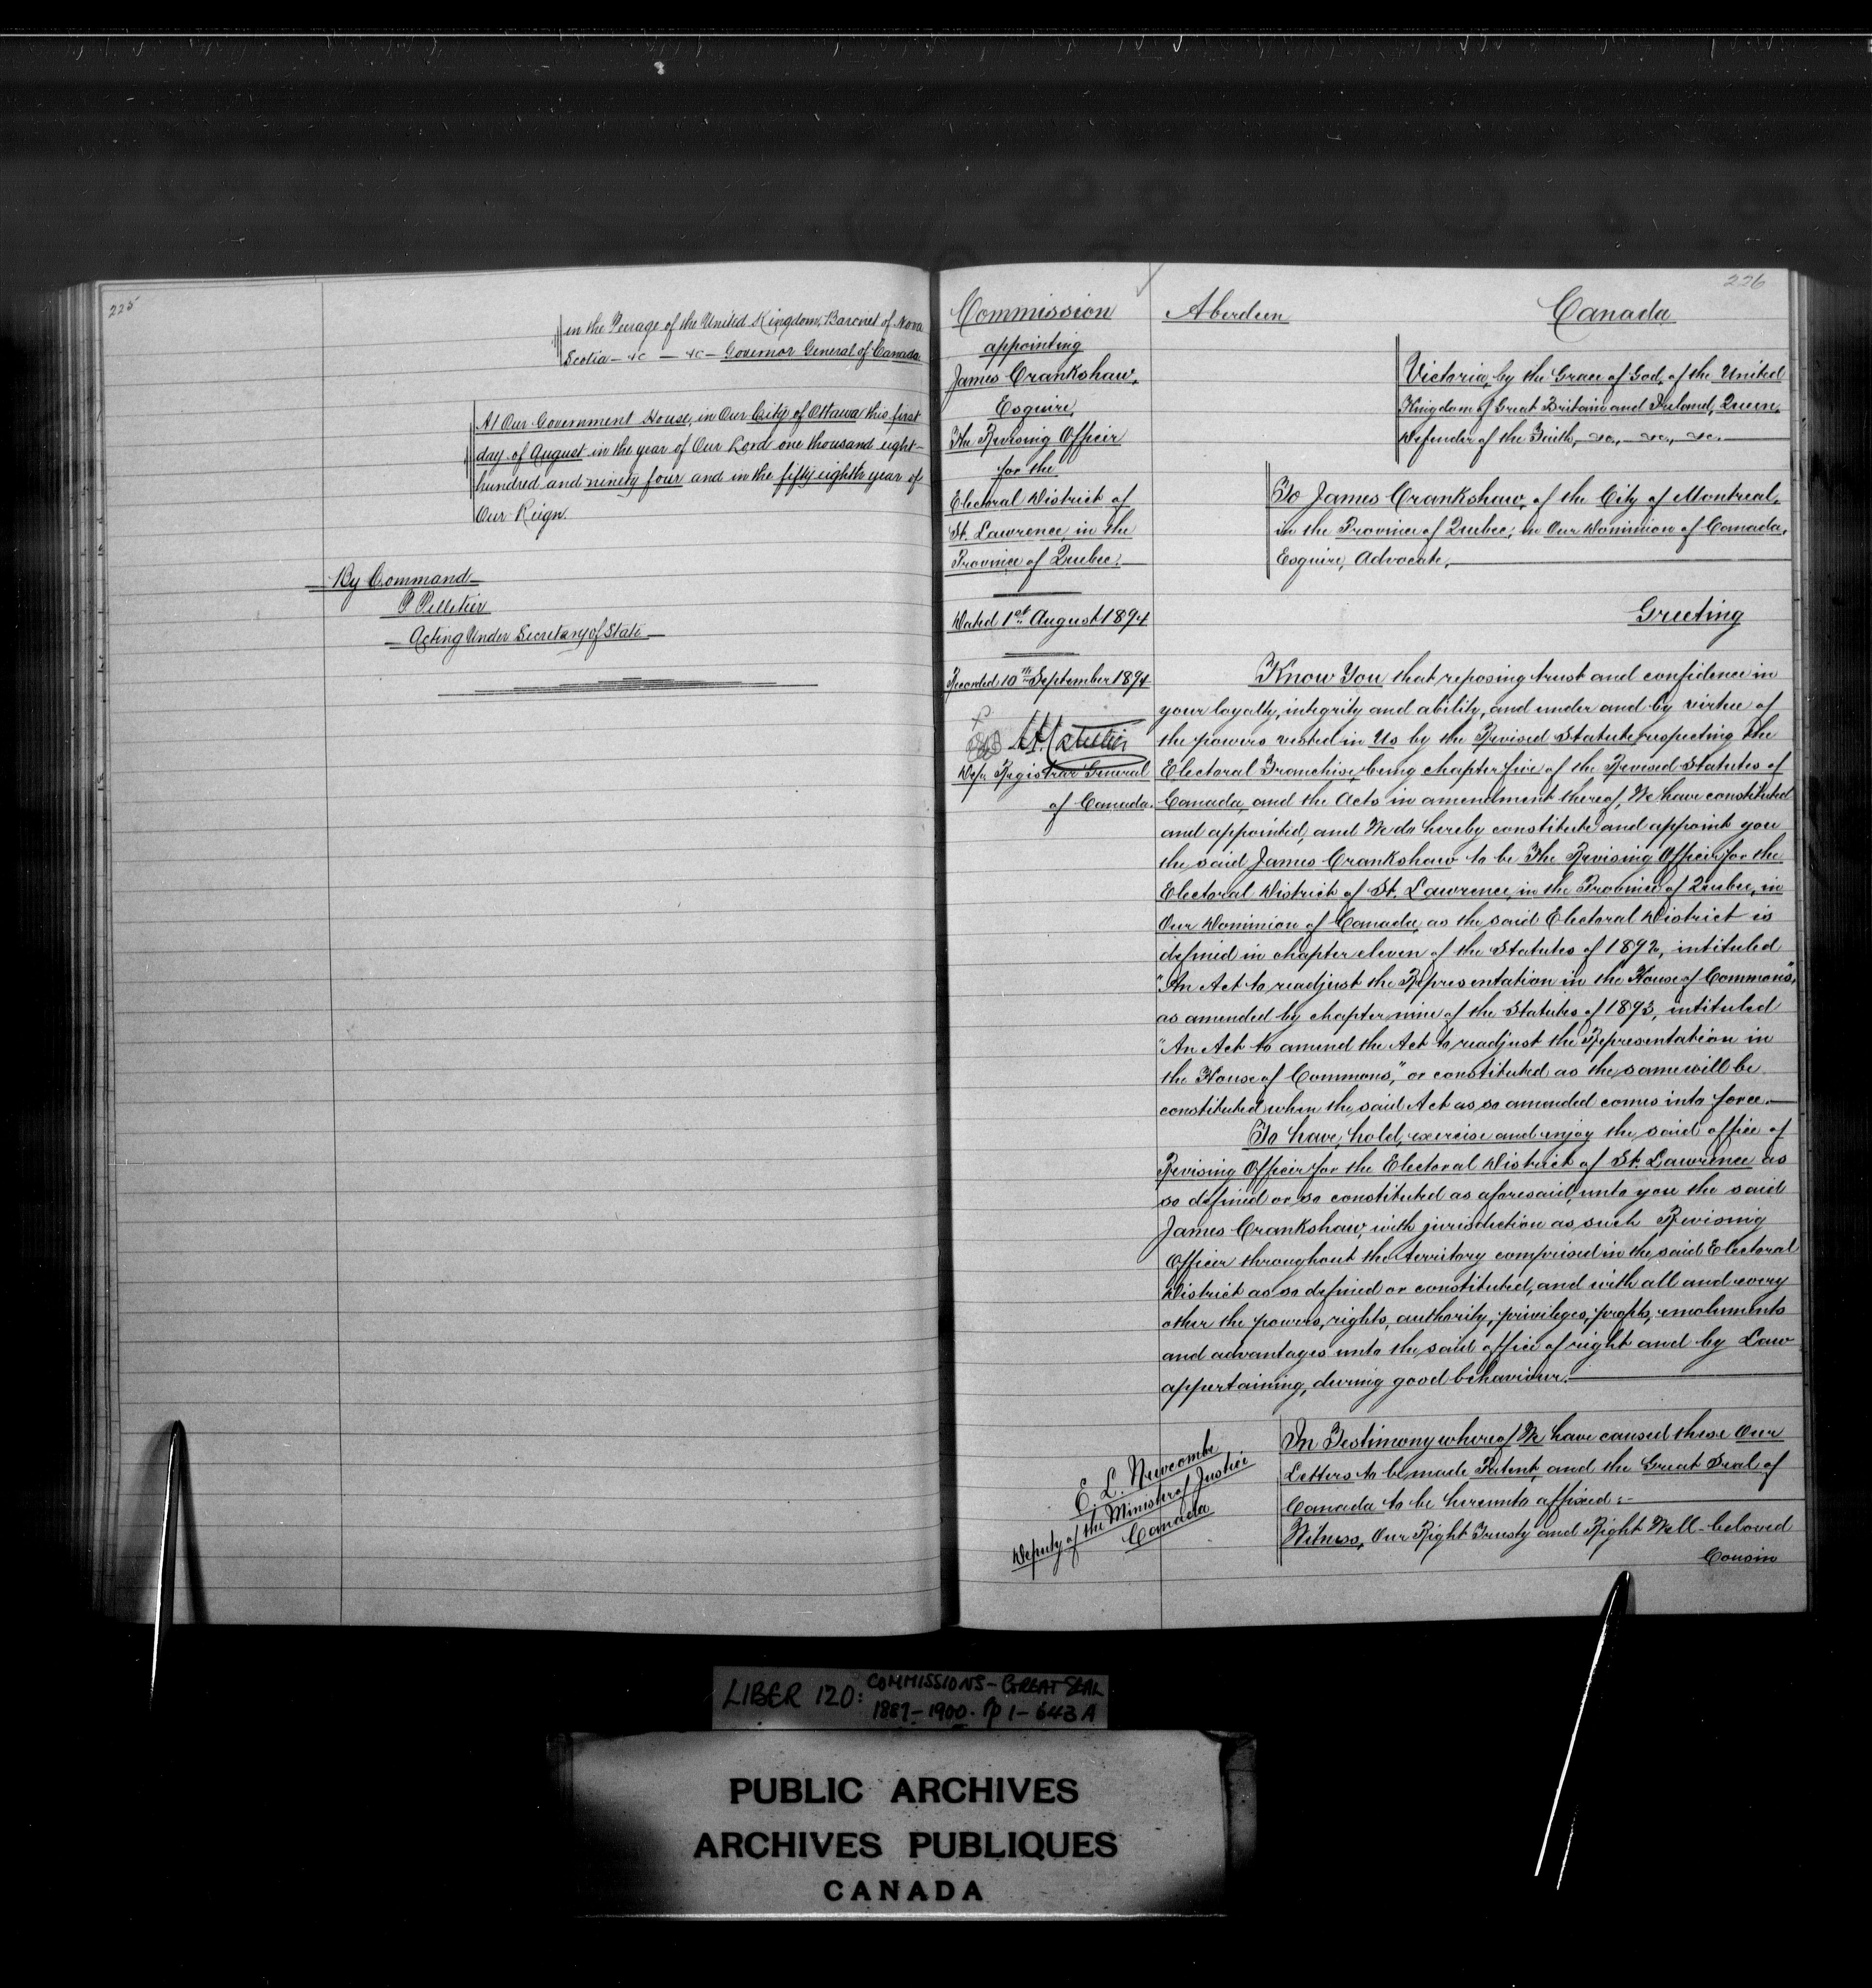 225
in the Peerage of the United Kingdom, Baronet of Nova
Scotia - &c - &c - Governor General of Canada
At Our Government House, in Our City of Ottawa this first
day of August in the year of Our Lord one thousand eight-
hundred and ninety four and in the fifty eighth year of
Our Reign.
By Command
P Pelletier
Acting Under Secretary of State
226
Commission
appointing
James Crankshaw,
Esquire,
The Revising Officer
for the
Electoral District of
St. Lawrence, in the
Province of Quebec.
Dated 1st August 1894
Recorded 10th September 1894
Depy. Registrar General
of Canada.
Aberdeen Canada
Victoria, by the Grace of God, of the United
Kingdom of Great Britain and Ireland, Queen,
Defender of the Faith, &c., &c., &c.
To James Crankshaw, of the City of Montreal,
in the Province of Quebec, in Our Dominion of Canada,
Esquire, Advocate,
Greeting
Know You that reposing trust and confidence in
your loyalty, integrity and ability, and under and by virtue of
the powers vested in Us by the Revised Statute respecting the
Electoral Franchise being chapter five of the Revised Statutes of
Canada, and the Acts in amendment thereof, We have constituted
and appointed, and We do hereby constitute and appoint you
the said James Crankshaw to be The Revising Officer for the
Electoral District of St. Lawrence, in the Province of Quebec, in
Our Dominion of Canada, as the said Electoral District is
defined in chapter eleven of the Statutes of 1892, intituled
"An Act to readjust the Representation in the House of Commons",
as amended by chapter nine of the Statutes of 1893, intituled
"An Act to amend the Act to readjust the Representation in
the House of Commons," or constituted as the same will be
constituted when the said Act as so amended comes into force.
To have, hold, exercise and enjoy the said office of
Revising Officer for the Electoral District of St. Lawrence as
so defined or so constituted as aforesaid, unto you the said
James Crankshaw, with jurisdiction as such Revising
Officer throughout the territory comprised in the said Electoral
District as so defined or constituted, and with all and every
other the powers, rights, authority, privileges, profits, emoluments
and advantages unto the said office of right and by Law
appertaining, during good behaviour.
E. L. Newcombe
Deputy of the Minister of Justice
Canada
In Testimony whereof We have caused these Our
Letters to be made Patent, and the Great Seal of
Canada to be hereunto affixed:-
Witness, Our Right Trusty and Right Well-beloved
Cousin
LIBER 120: COMMISSIONS - GREAT SEAL
1887-1900. pp 1-643A
PUBLIC ARCHIVES
ARCHIVES PUBLIQUES
CANADA